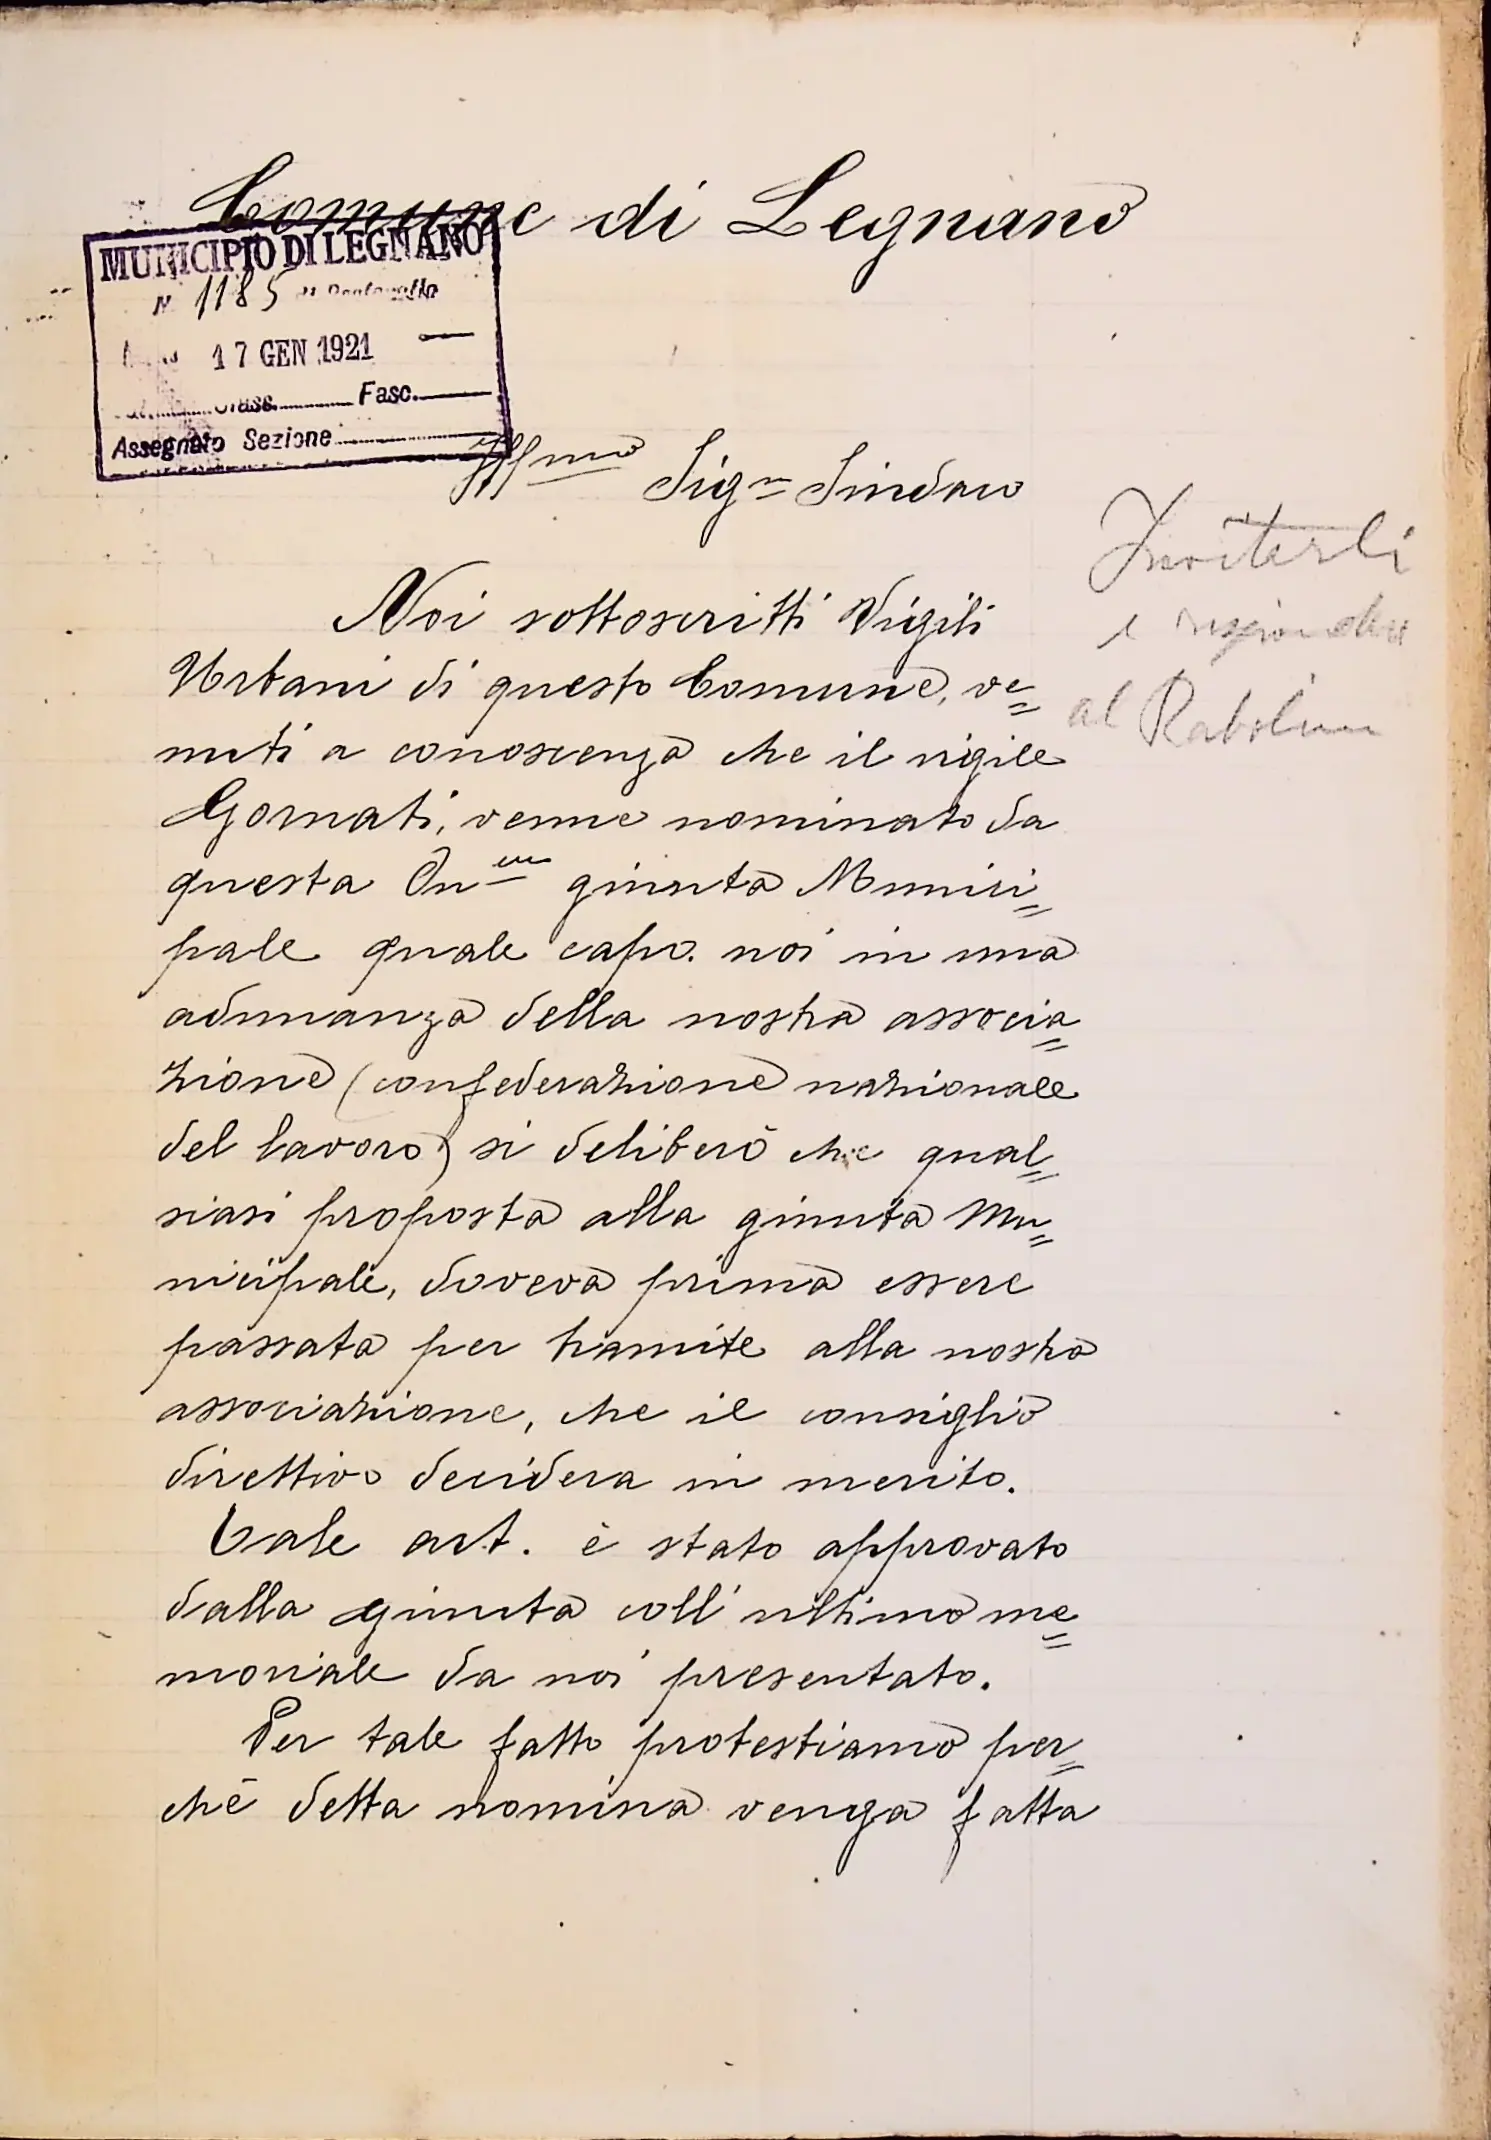 Comune di Legnano
MUNICIPIO DI LEGNANO
N. 1185 di Protocollo
17 GEN 1921
Class. Fasc.
Assegnato Sezione
Illmo Sigr Sindaco
Inviterli
e rispondere
al Rabolini
Noi sottoscritti Vigili
Urbani di questo Comune, ve=
nuti a conoscenza che il vigile
Gornati, venne nominato da
questa On giunta Munici=
pale quale capo. noi in una
adunanza della nostra associa=
zione (confederazione nazionale
del lavoro) si deliberò che qual=
siasi proposta alla giunta Mu=
nicipale, doveva prima essere
passata per tramite alla nostra
associazione, che il consiglio
direttivo decidera in merito.
Tale art. è stato approvato
dalla giunta coll' ultimo me=
moriale da noi presentato.
Per tale fatto protestiamo per=
chè detta nomina venga fatta